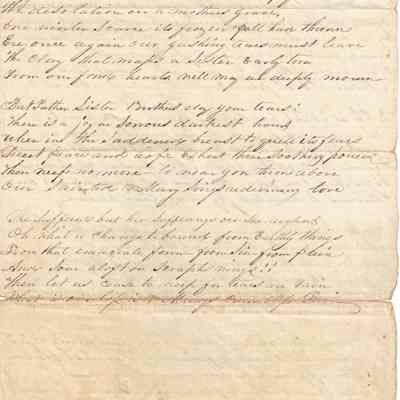 The desolation on a mothers grave,
Ere winter o'er it its frozen pall had thrown
Ere once again our gushing tears must lave
The Clay that wraps a Sister Early torn
From our fond hearts well may we deeply mourn

But Father Sister Brothers dry your tears!
There is a joy in Sorrows darkest hour,
when in the Saddened breast to quell its fears
Sweet Peace and hope Exhert their Soothing power
Then weep no more to near you throne above
Our Sainted Mary Sings redeeming love

She Suffered but her Sufferings are
Oh what a change to bound from Earthly things
From that emaciate form from Sin from pain
And Soar aloft on Seraph wings!!
Then let us Cease to weep for tears are vain